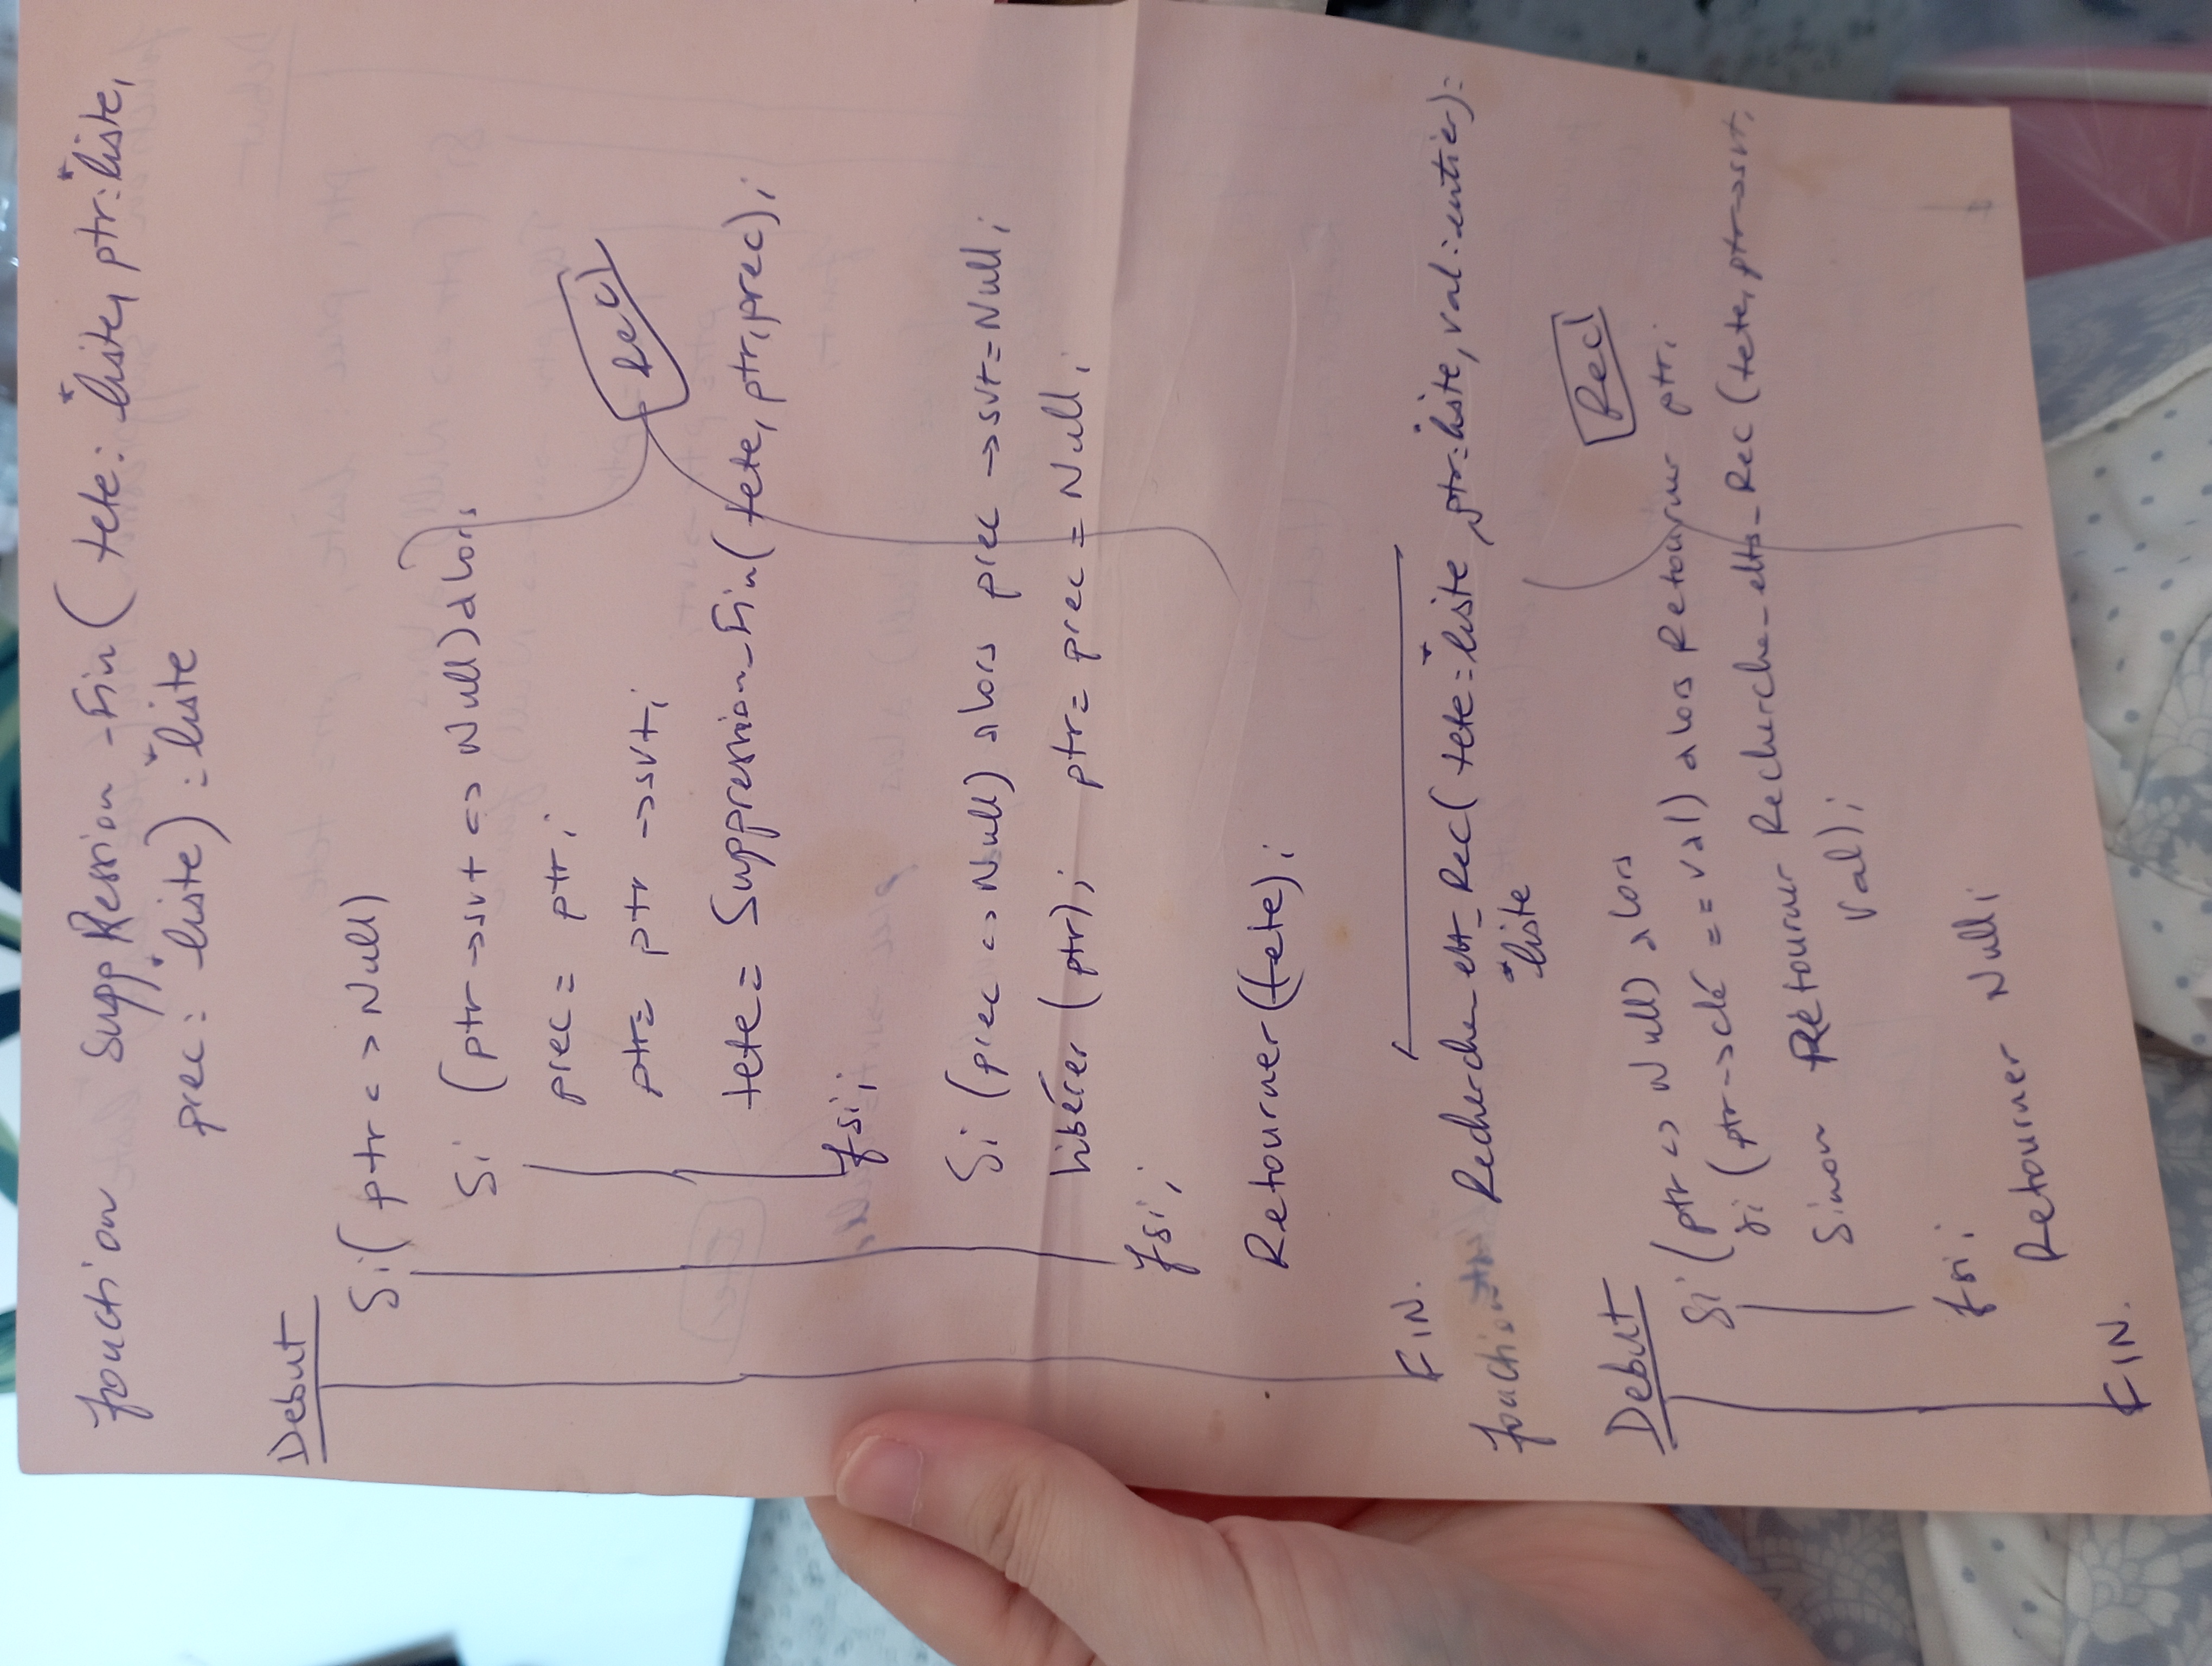 fonction Suppression-Fin( tete: *liste, ptr: *liste,
prec: *liste) : *liste
Debut
Si( ptr <> Null)
Si (ptr ->svt <> Null) alors
prec = ptr;
ptr= ptr ->svt;
Rec
tete= Suppression-Fin( tete, ptr, prec);
fsi;
Si (prec <> Null) alors prec ->svt=Null;
Libérer (ptr); ptr= prec = Null;
fsi;
Retourner (tete);
FIN.
fonction Recherche_elt_Rec( tete: *liste, ptr: *liste, val: entier):
*liste
Debut
Rec
Si (ptr <> Null) alors
Si (ptr->clé == val) alors Retourner ptr;
Sinon Retourner Recherche_elts_Rec (tete, ptr->svt,
val);
fsi;
Retourner Null;
FIN.